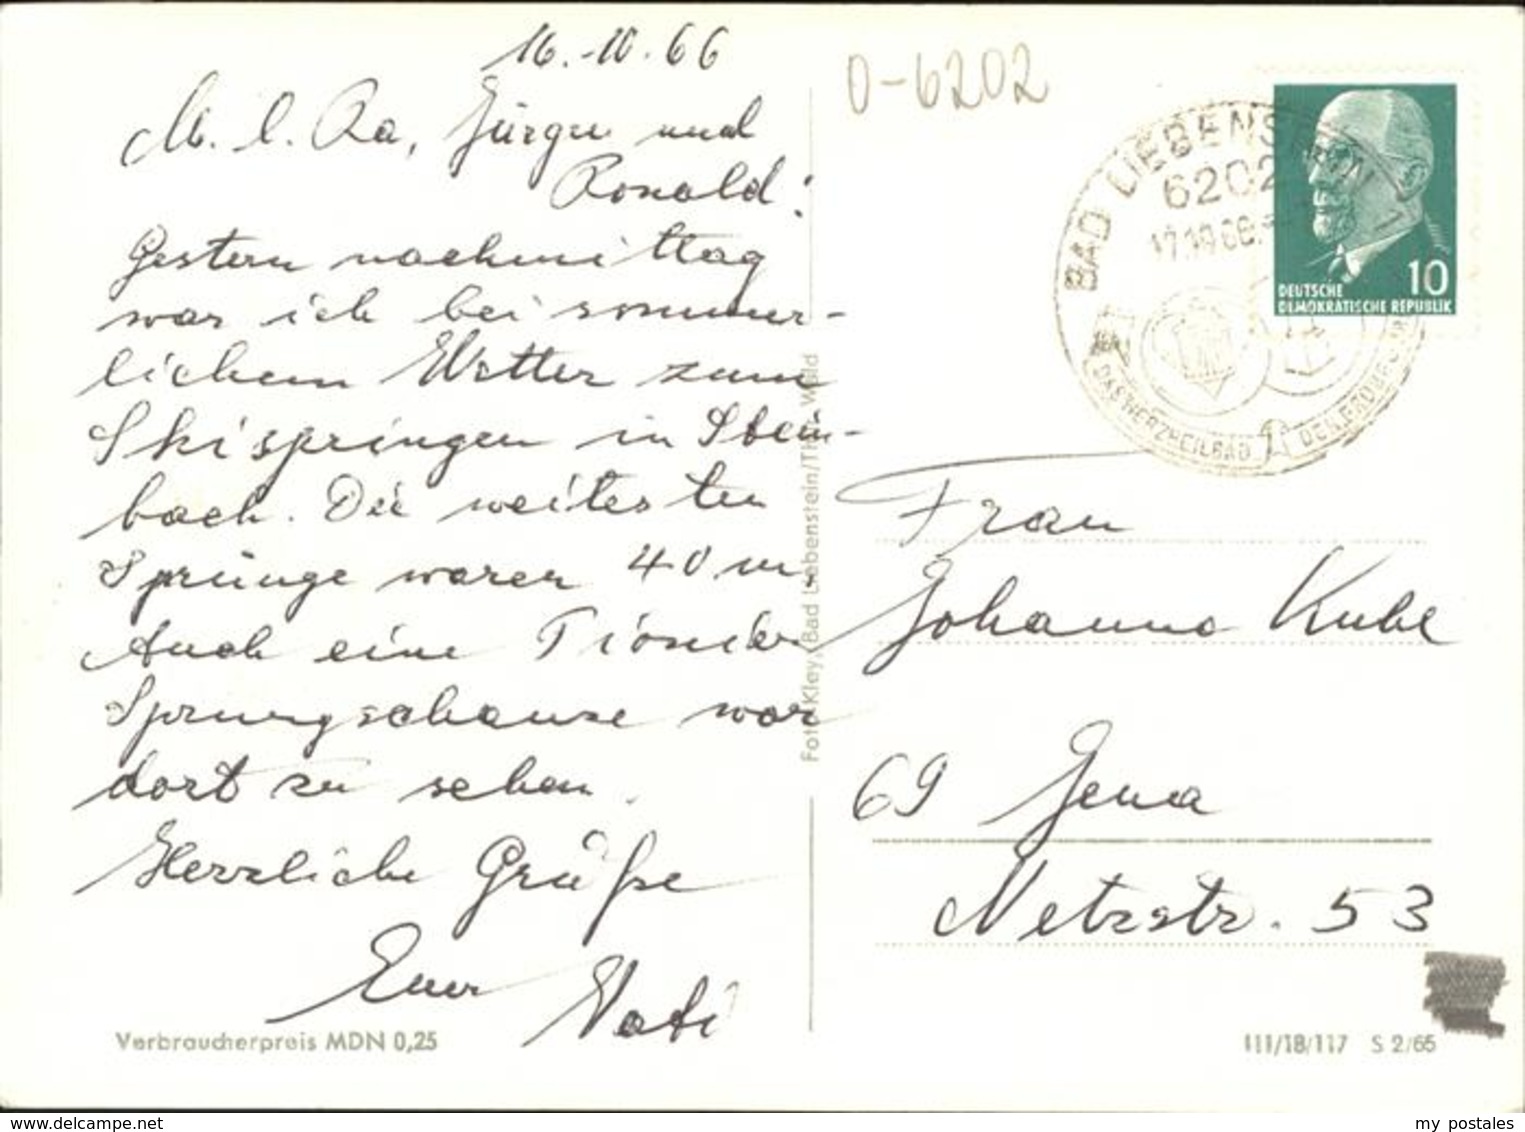 16.-10.66
M. l. Ra, Jürgen und
Ronald!
Gestern nachmittag
war ich bei sommer-
lichem Wetter zum
Skispringen in Stein-
bach. Die weitesten
Sprünge waren 40 m.
Auch eine Pionier
Sprungschanze war
dort zu sehen.
Herzliche Grüße
Euer Vati
Verbraucherpreis MDN 0,25
Foto: Kley, Bad Liebenstein/Thür. Wald
O-6202
BAD LIEBENSTEIN
6202
17.10.66
DAS HERZHEILBAD
10
DEUTSCHE
DEMOKRATISCHE REPUBLIK
Frau
Johanna Kuhl
69 Jena
Netzstr. 53
111/18/117 S 2/65
www.delcampe.net
my postales